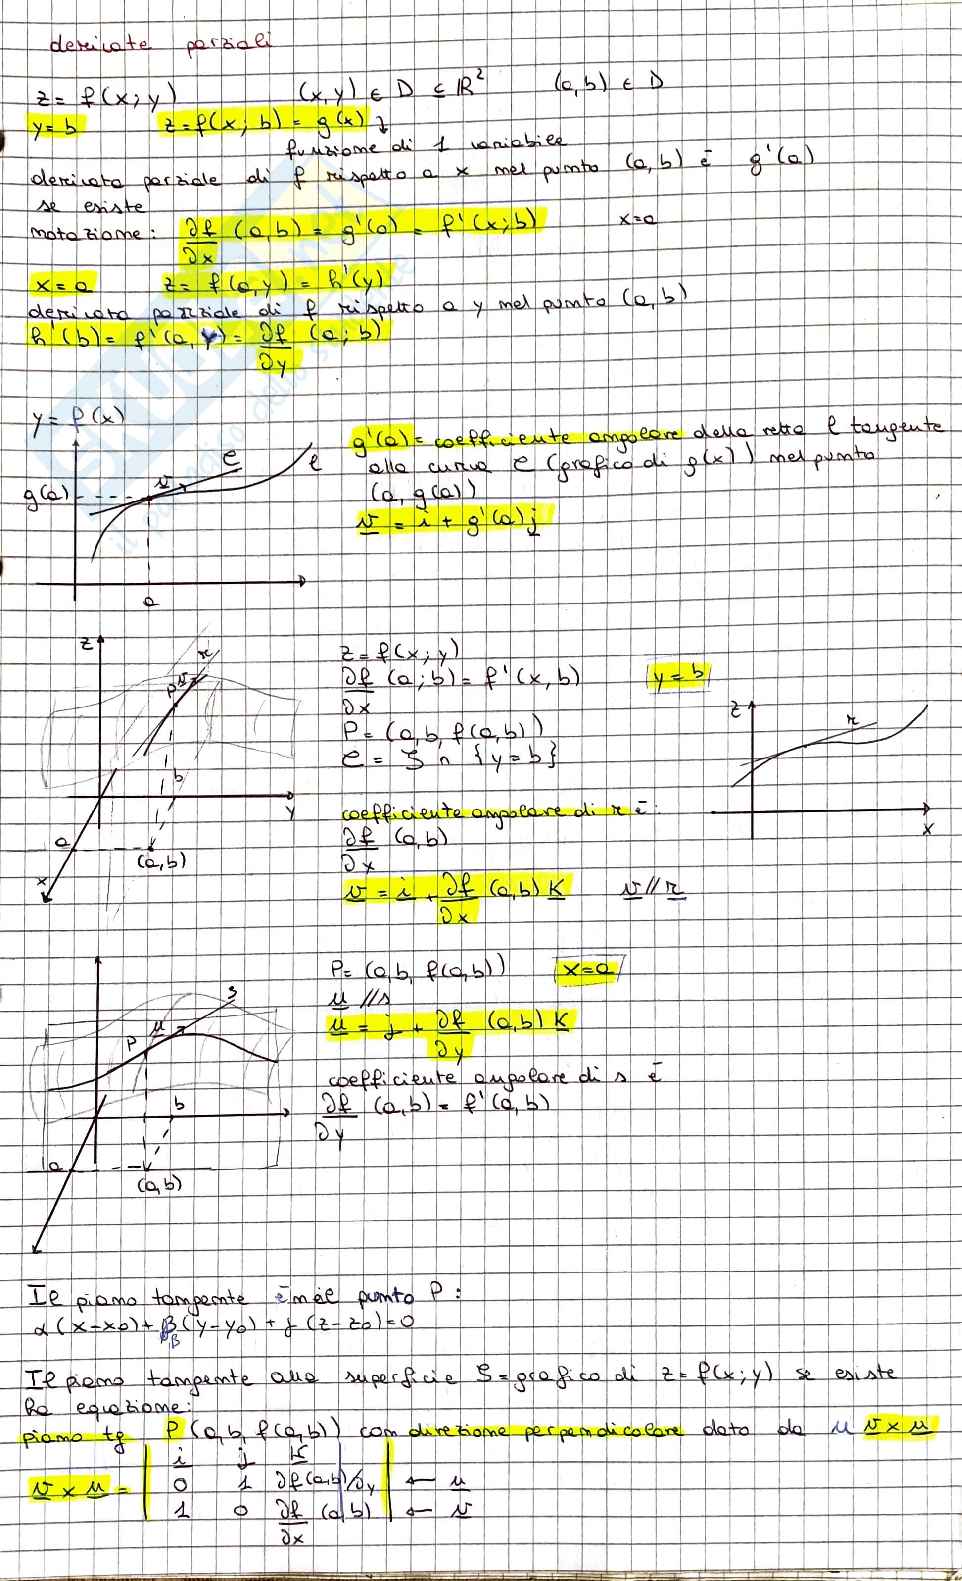 derivate parziali
z = f(x; y) (x, y) ∈ D ⊆ R² (a, b) ∈ D
y = b z = f(x; b) = g(x) ↴
funzione di 1 variabile
derivata parziale di f rispetto a x nel punto (a, b) è g'(a)
se esiste
notazione: ∂f/∂x (a, b) = g'(a) = f'(x; b) x=a
x = a z = f(a, y) = h'(y)
derivata parziale di f rispetto a y nel punto (a, b)
h'(b) = f'(a, y) = ∂f/∂y (a; b)
y = f(x)
g'(a) = coefficiente angolare della retta l tangente
alla curva C (grafico di g(x)) nel punto
(a, g(a))
v = i + g'(a) j
g(a) v C l
a
z = f(x; y)
∂f/∂x (a; b) = f'(x, b) y = b
P = (a, b, f(a, b))
C = S ∩ {y = b}
coefficiente angolare di r è:
∂f/∂x (a, b)
v = i + ∂f/∂x (a, b) K v // r
z r P v b y a (a, b) x
z r x
P = (a, b, f(a, b)) x = a
u // s
u = j + ∂f/∂y (a, b) K
coefficiente angolare di s è
∂f/∂y (a, b) = f'(a, b)
s u P b a (a, b)
Il piano tangente è nel punto P :
α (x-x0) + β (y-y0) + γ (z-z0) = 0
β
Il piano tangente alla superficie S = grafico di z = f(x; y) se esiste
ha equazione:
piano tg P (a, b, f(a, b)) con direzione perpendicolare dato da u v × u
v × u = | i j K |
0 1 ∂f(a,b)/∂y ← u
1 0 ∂f/∂x (a, b) ← v